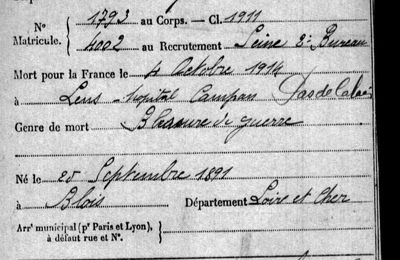 N° Matricule. 1793 au Corps. — Cl. 1911
4002 au Recrutement Seine 2e Bureau
Mort pour la France le 4 Octobre 1914
à Lens hopital Campan Pas de Calais
Genre de mort Blessure de guerre
Né le 25 Septembre 1891
à Blois Département Loir et Cher
Arrt municipal (pr Paris et Lyon),
à défaut rue et N°.